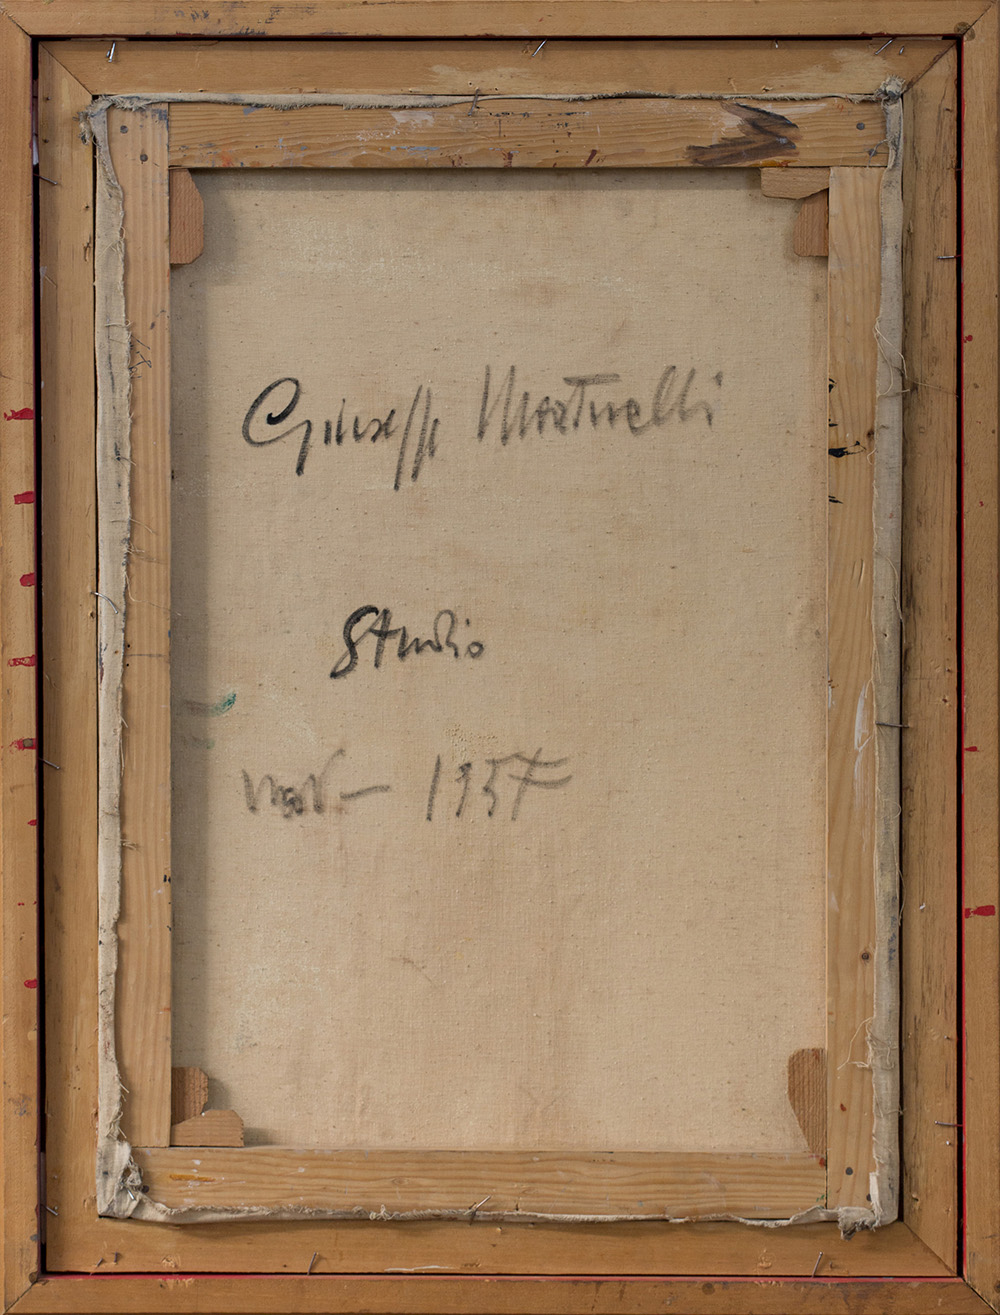 Giuseppe Martinelli
Studio
nov - 1957